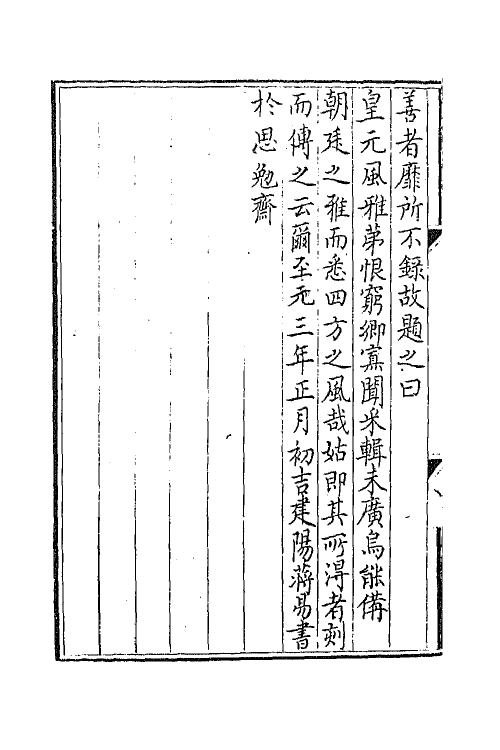 善者靡所不錄故題之曰
皇元風雅苐恨窮鄉寡聞采輯未廣烏能備
朝廷之雅而悉四方之風哉姑即其所得者刻
而傳之云爾至元三年正月初吉建陽蔣易書
於思勉齋